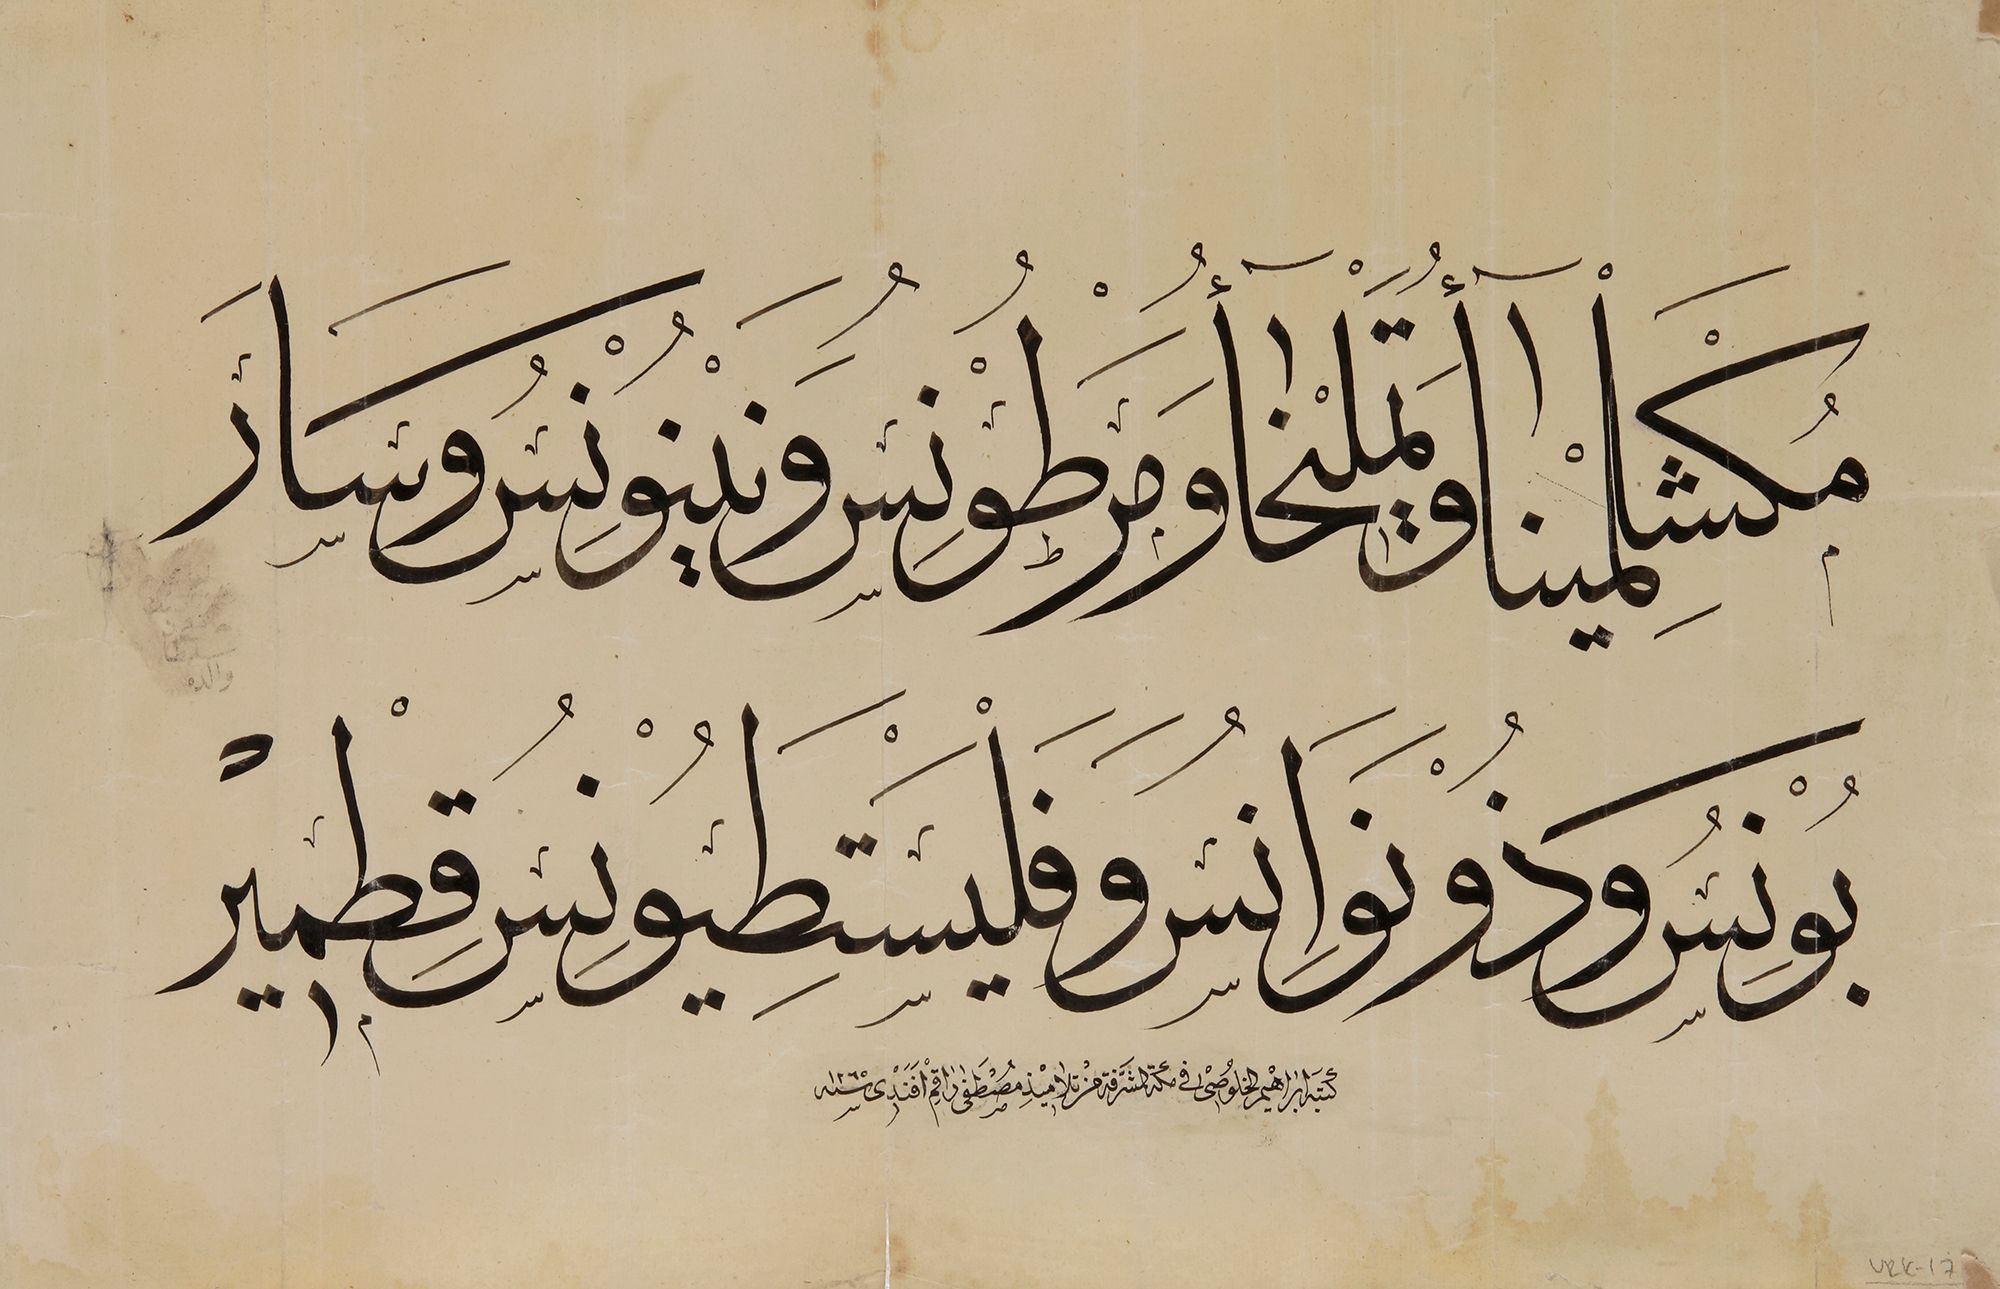 مُكْسَلْمِينَا وَيَمْلِيخَا وَمَرْطُونِسُ وَنَيْنُونِسُ وَسَارَ
بُونِسُ وَذُونَوَانِسُ وَفَلْيَسْتَطِيُونِسُ قِطْمِيرْ
كتبه ابراهيم الخلوصى فى مكة المشرفة من تلاميذ مصطفى راقم افندى سنه ١٢٦٥
والده
VRK-17